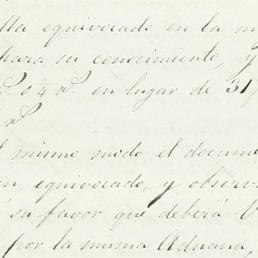 lla equivocado en la m
para su conocimiento, y
P. 0 4 r. en lugar de 31
r.
l mismo modo el docume
en equivocado, y observ
su favor que deberá V
por la misma Aduana,